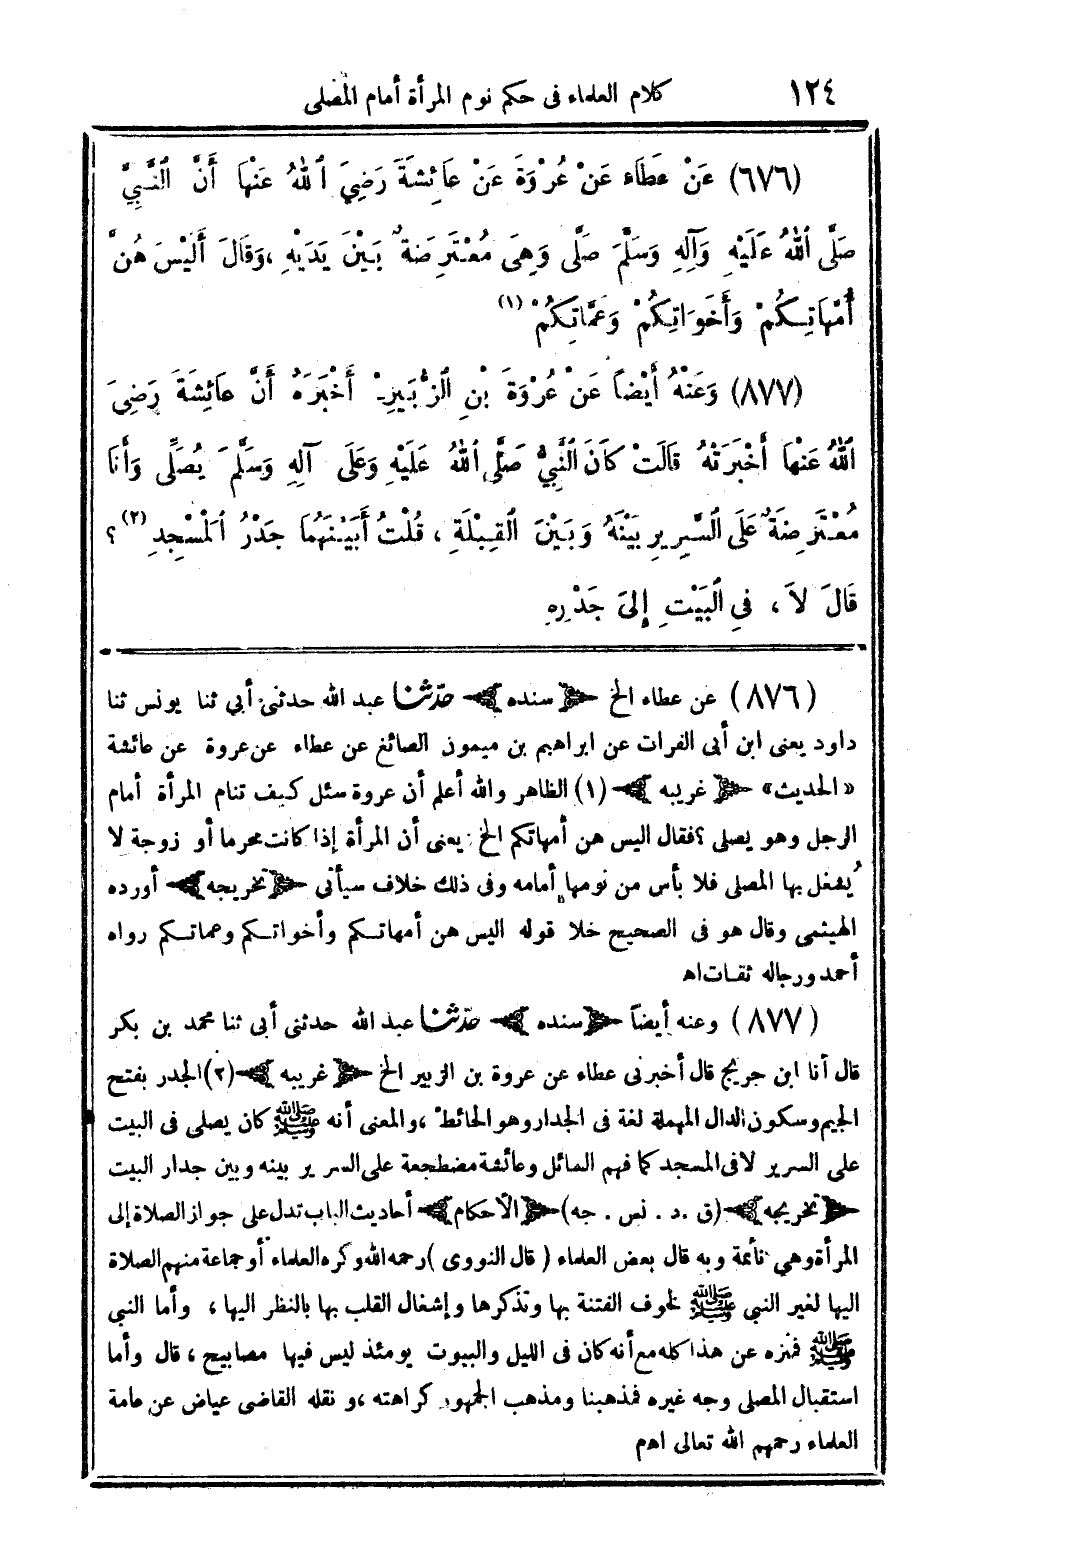 ١٢٤ كلام العلماء فى حكم نوم المرأة أمام المصلى
(٦٧٦) عَنْ عَطَاءٍ عَنْ عُرْوَةَ عَنْ عَائِشَةَ رَضِيَ اللهُ عَنْهَا أَنَّ النَّبِيَّ
صَلَّى اللهُ عَلَيْهِ وَآلِهِ وَسَلَّمَ صَلَّى وَهِيَ مُعْتَرِضَةٌ بَيْنَ يَدَيْهِ ، وَقَالَ أَلَيْسَ هُنَّ
أُمَّهَاتِكُمْ وَأَخَوَاتِكُمْ وَعَمَّاتِكُمْ (١)
(٨٧٧) وَعَنْهُ أَيْضاً عَنْ عُرْوَةَ بْنِ الزُّبَيْرِ أَخْبَرَهُ أَنَّ عَائِشَةَ رَضِيَ
اللهُ عَنْهَا أَخْبَرَتْهُ قَالَتْ كَانَ النَّبِيُّ صَلَّى اللهُ عَلَيْهِ وَعَلَى آلِهِ وَسَلَّمَ يُصَلِّى وَأَنَا
مُعْتَرِضَةٌ عَلَى السَّرِيرِ بَيْنَهُ وَبَيْنَ القِبْلَةِ ، قُلْتُ أَبَيْنَهُمَا جَدْرُ المَسْجِدِ (٢) ؟
قَالَ لاَ ، فِي البَيْتِ إِلَى جَدْرِهِ
(٨٧٦) عن عطاء الخ ﴿سنده﴾ حدّثنا عبد الله حدثنى أبي ثنا يونس ثنا
داود يعنى ابن أبى الفرات عن ابراهيم بن ميمون الصائغ عن عطاء عن عروة عن عائشة
«الحديث» ﴿غريبه﴾ (١) الظاهر والله أعلم أن عروة سئل كيف تنام المرأة أمام
الرجل وهو يصلى ؟ فقال اليس هن أمهاتكم الخ يعنى أن المرأة إذا كانت محرما أو زوجة لا
يُشغل بها المصلى فلا بأس من نومها أمامه وفى ذلك خلاف سيأتى ﴿تخريجه﴾ أورده
الهيثمى وقال هو فى الصحيح خلا قوله اليس هن أمهاتكم وأخواتكم وعماتكم رواه
أحمد ورجاله ثقات اه
(٨٧٧) وعنه أيضاً ﴿سنده﴾ حدّثنا عبد الله حدثنى أبى ثنا محمد بن بكر
قال أنا ابن جريج قال أخبرنى عطاء عن عروة بن الزبير الخ ﴿غريبه﴾ (٢) الجدر بفتح
الجيم وسكون الدال المهملة لغة فى الجدار وهو الحائط ، والمعنى أنه ﷺ كان يصلى فى البيت
على السرير لافى المسجد كما فهم السائل وعائشة مضطجعة على السرير بينه وبين جدار البيت
﴿تخريجه﴾ (ق . د . نس . جه) ﴿الأحكام﴾ أحاديث الباب تدل على جواز الصلاة إلى
المرأة وهي نائمة وبه قال بعض العلماء ( قال النووى ) رحمه الله وكره العلماء أو جماعة منهم الصلاة
اليها لغير النبي ﷺ لخوف الفتنة بها وتذكرها وإشغال القلب بها بالنظر اليها ، وأما النبي
ﷺ فمنزه عن هذا كله مع أنه كان فى الليل والبيوت يومئذ ليس فيها مصابيح ، قال وأما
استقبال المصلى وجه غيره فمذهبنا ومذهب الجمهور كراهته ، ونقله القاضى عياض عن عامة
العلماء رحمهم الله تعالى اهم